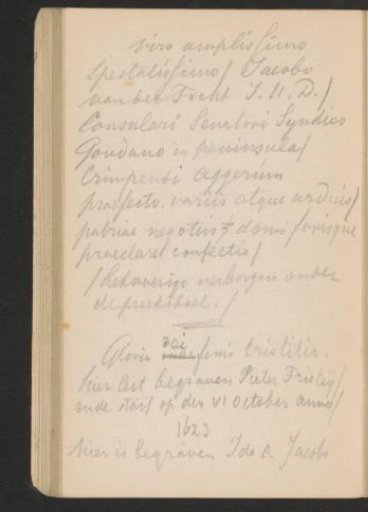 viro amplissimo
spectatissimo / Jacobo
van der Tocht J. U. D. /
Consulari Senatori Syndico
Goudano in peninsula /
Crimpendi aggerum
praefecto variis atque arduis /
patriae negotiis domi forisque
praeclare confectis /
/ het overige verborgen onder
de preekstoel. /
Gloria dei finis tristitia.
hier leit begraven Pieter /
ende starf op den VI October anno /
1623
hier is begraven Ida A. Jacobs